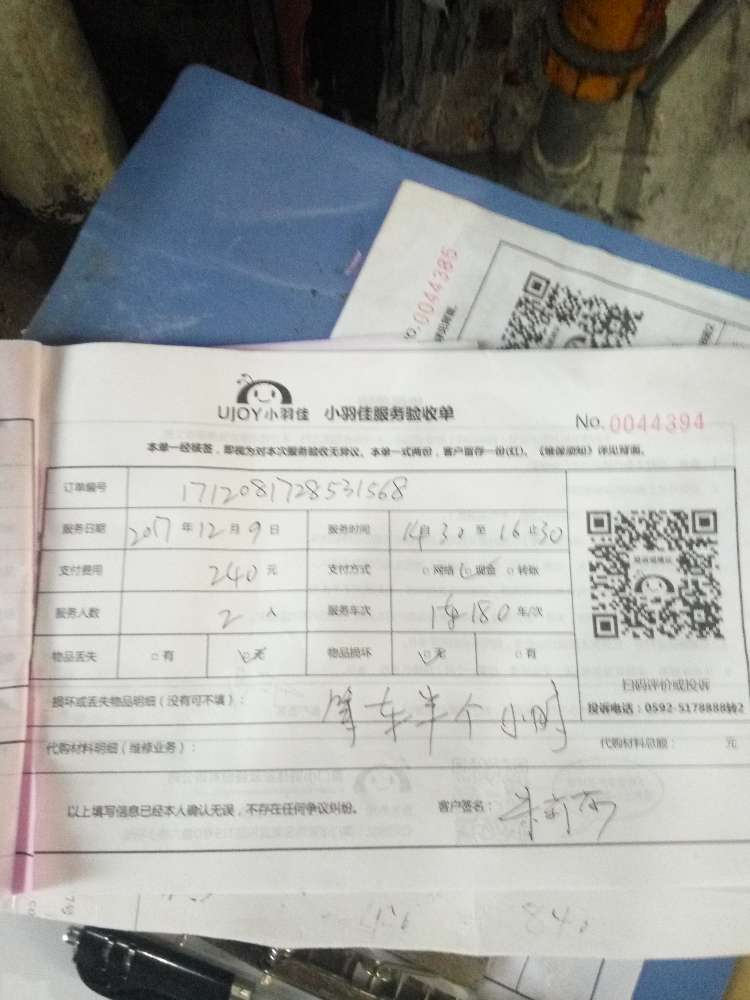 No.0044385
UJOY小羽佳 小羽佳服务验收单
No.0044394
本单一经核签,即视为对本次服务验收无异议。本单一式两份,客户留存一份(红)。《维保须知》详见背面。
订单编号 1712081728531568
服务日期 2017年12月9日 服务时间 14自30至16止30
支付费用 240元 支付方式 网络 现金 转账
服务人数 2人 服务车次 180车/次
物品丢失 有 无 物品损坏 无 有
扫码评价或投诉
损坏或丢失物品明细(没有可不填): 车半个小时
投诉电话:0592-5178888转2
代购材料明细(维修业务): 代购材料总额: 元
以上填写信息已经本人确认无误,不存在任何争议纠纷。 客户签名: